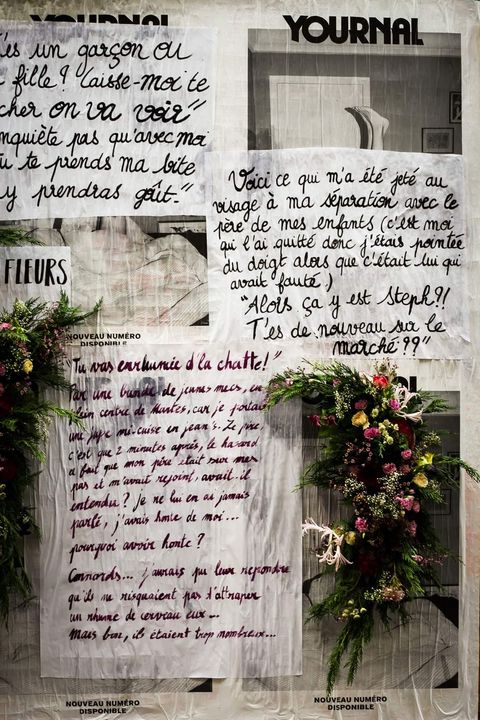 YOURNAL
YOURNAL
es un garçon ou
fille? Laisse-moi te
cher on va voir"
nquiète pas qu'avec moi
u te prends ma bite
y prendras goût."
Voici ce qui m'a été jeté au
visage à ma séparation avec le
père de mes enfants (c'est moi
qui l'ai quitté donc j'étais pointée
du doigt alors que c'était lui qui
avait fauté.)
"Alors ça y est Steph?!
T'es de nouveau sur le
marché??"
FLEURS
NOUVEAU NUMÉRO
DISPONIBLE
"Tu vas enrhumée d'la chatte!"
Par une bande de jeunes mecs, en
plein centre de Nantes, car je portais
une jupe mi-cuisse en jean's. Le pire,
c'est que 2 minutes après, le hasard
a fait que mon père était sur mes
pas et m'avait rejoint, avait-il
entendu? Je ne lui en ai jamais
parlé, j'avais honte de moi...
pourquoi avoir honte?
Connards... j'aurais pu leur répondre
qu'ils ne risquaient pas d'attraper
un rhume de cerveau eux...
Mais bon, ils étaient trop nombreux...
NOUVEAU NUMÉRO
DISPONIBLE
NOUVEAU NUMÉRO
DISPONIBLE